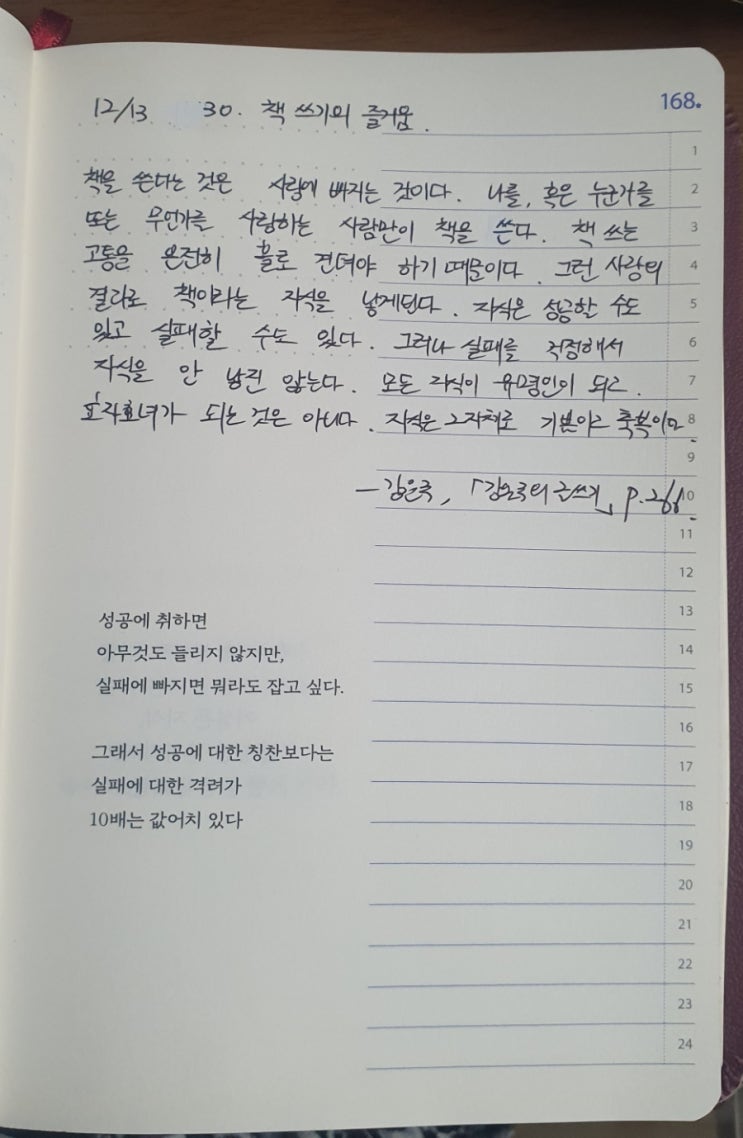 168.
12/13 30. 책 쓰기의 즐거움.
책을 쓴다는 것은 사랑에 빠지는 것이다. 나를, 혹은 누군가를
또는 무언가를 사랑하는 사람만이 책을 쓴다. 책 쓰는
고통을 온전히 홀로 견뎌야 하기 때문이다. 그런 사랑의
결과로 책이라는 자식을 낳게된다. 자식은 성공할 수도
있고 실패할 수도 있다. 그러나 실패를 걱정해서
자식을 안 낳진 않는다. 모든 자식이 유명인이 되고.
효자효녀가 되는 것은 아니다. 자식은 그자체로 기쁨이고 축복이다.
- 김은국, 「김은국의 글쓰기」, p.266
1
2
3
4
5
6
7
8
9
10
11
12
13
14
15
16
17
18
19
20
21
22
23
24
성공에 취하면
아무것도 들리지 않지만,
실패에 빠지면 뭐라도 잡고 싶다.
그래서 성공에 대한 칭찬보다는
실패에 대한 격려가
10배는 값어치 있다